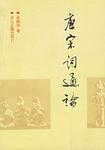 唐宋词通论
吴熊和 著
浙江古籍出版社